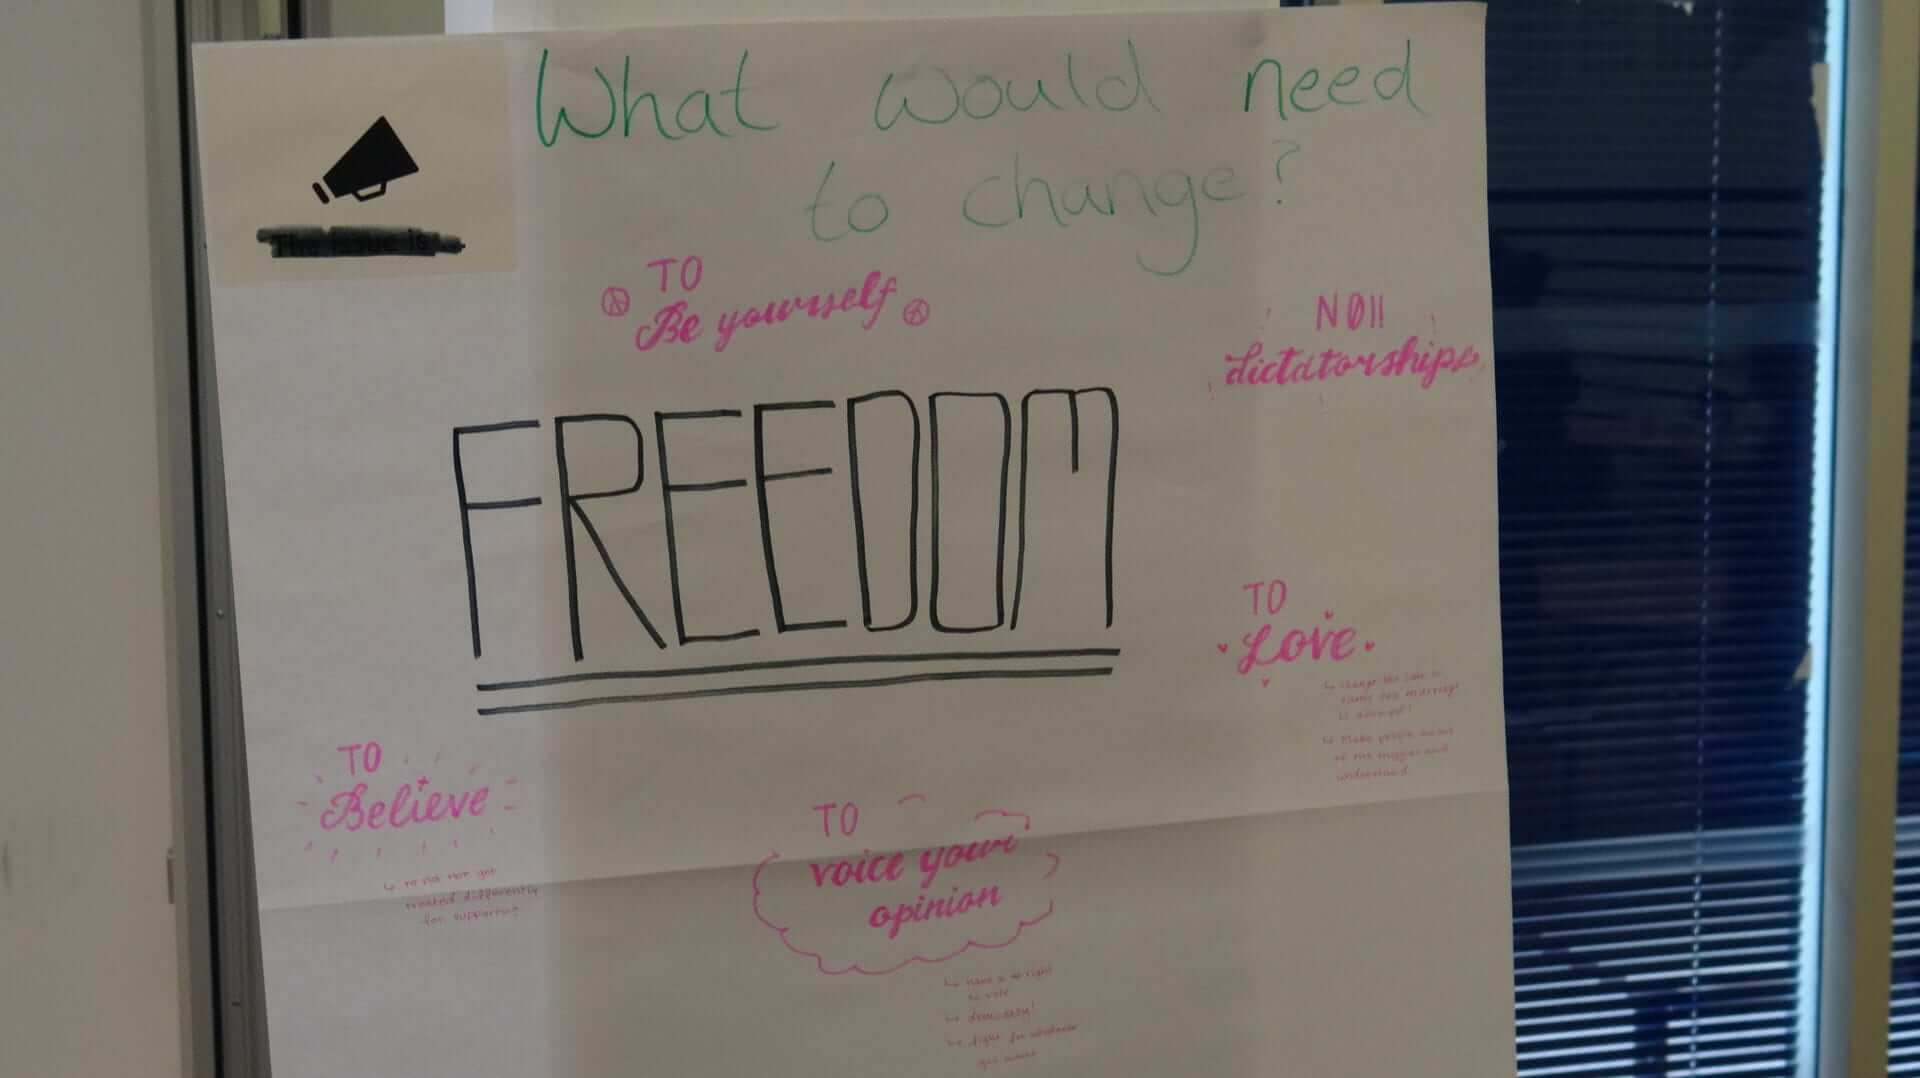 What would need
to change?
The issue is
TO
Be yourself
NO!!
dictatorships
FREEDOM
TO
Love
↳ change the law so
same sex marriage
is allowed!
↳ Make people aware
of the triggers and
understand
TO
Believe
↳ to not get
treated differently
for supporting
TO
voice your
opinion
↳ have a right
to vote
↳ democracy!
↳ fight for whatever
you want